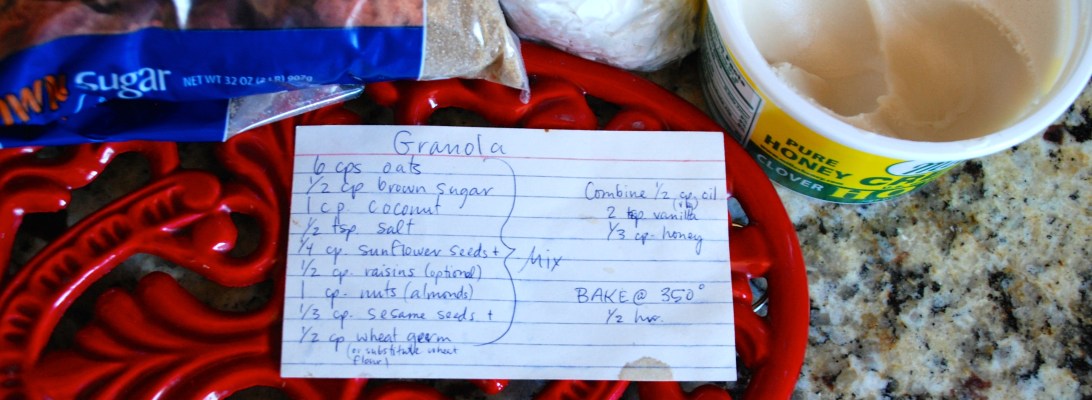 Sugar
NET WT 32 OZ (2 LB) 907g
PURE
HONEY
CLOVER
Granola
6 cps oats
1/2 cp. brown sugar
1 cp. coconut
1/2 tsp. salt
1/4 cp. sunflower seeds +
1/2 cp. raisins (optional)
1 cp. nuts (almonds)
1/3 cp. sesame seeds +
1/2 cp wheat germ
(or substitute wheat
flour)
Mix
Combine 1/2 cp. oil
2 tsp. vanilla
1/3 cp. honey
BAKE @ 350°
1/2 hr.